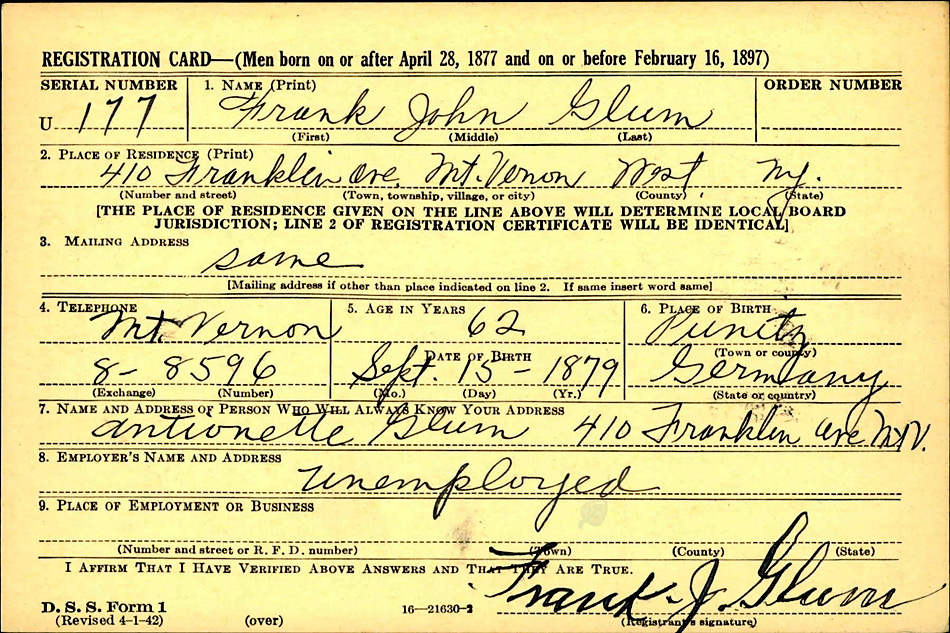 REGISTRATION CARD—(Men born on or after April 28, 1877 and on or before February 16, 1897)
SERIAL NUMBER 1. NAME (Print) ORDER NUMBER
U 177 Frank John Glum
(First) (Middle) (Last)
2. PLACE OF RESIDENCE (Print)
410 Franklin ave. Mt. Vernon West Ny.
(Number and street) (Town, township, village, or city) (County) (State)
[THE PLACE OF RESIDENCE GIVEN ON THE LINE ABOVE WILL DETERMINE LOCAL BOARD
JURISDICTION; LINE 2 OF REGISTRATION CERTIFICATE WILL BE IDENTICAL]
3. MAILING ADDRESS
same
[Mailing address if other than place indicated on line 2. If same insert word same]
4. TELEPHONE 5. AGE IN YEARS 6. PLACE OF BIRTH
Mt. Vernon 62
DATE OF BIRTH (Town or county)
8-8596 Sept. 15-1879 Germany
(Exchange) (Number) (Mo.) (Day) (Yr.) (State or country)
7. NAME AND ADDRESS OF PERSON WHO WILL ALWAYS KNOW YOUR ADDRESS
Antionette Glum 410 Franklin ave Mt V.
8. EMPLOYER'S NAME AND ADDRESS
unemployed
9. PLACE OF EMPLOYMENT OR BUSINESS
(Number and street or R. F. D. number) (Town) (County) (State)
I AFFIRM THAT I HAVE VERIFIED ABOVE ANSWERS AND THAT THEY ARE TRUE.
Frank J. Glum
D. S. S. Form 1 16—21630-2
(Revised 4-1-42) (over) (Registrant's signature)